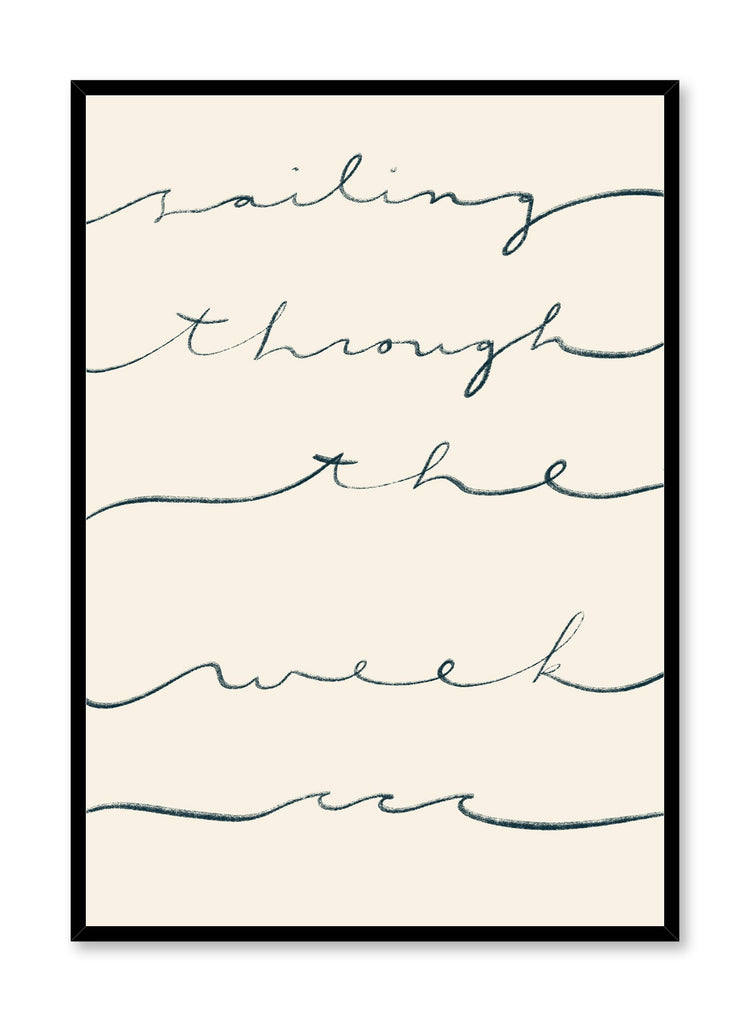 sailing
through
the
week